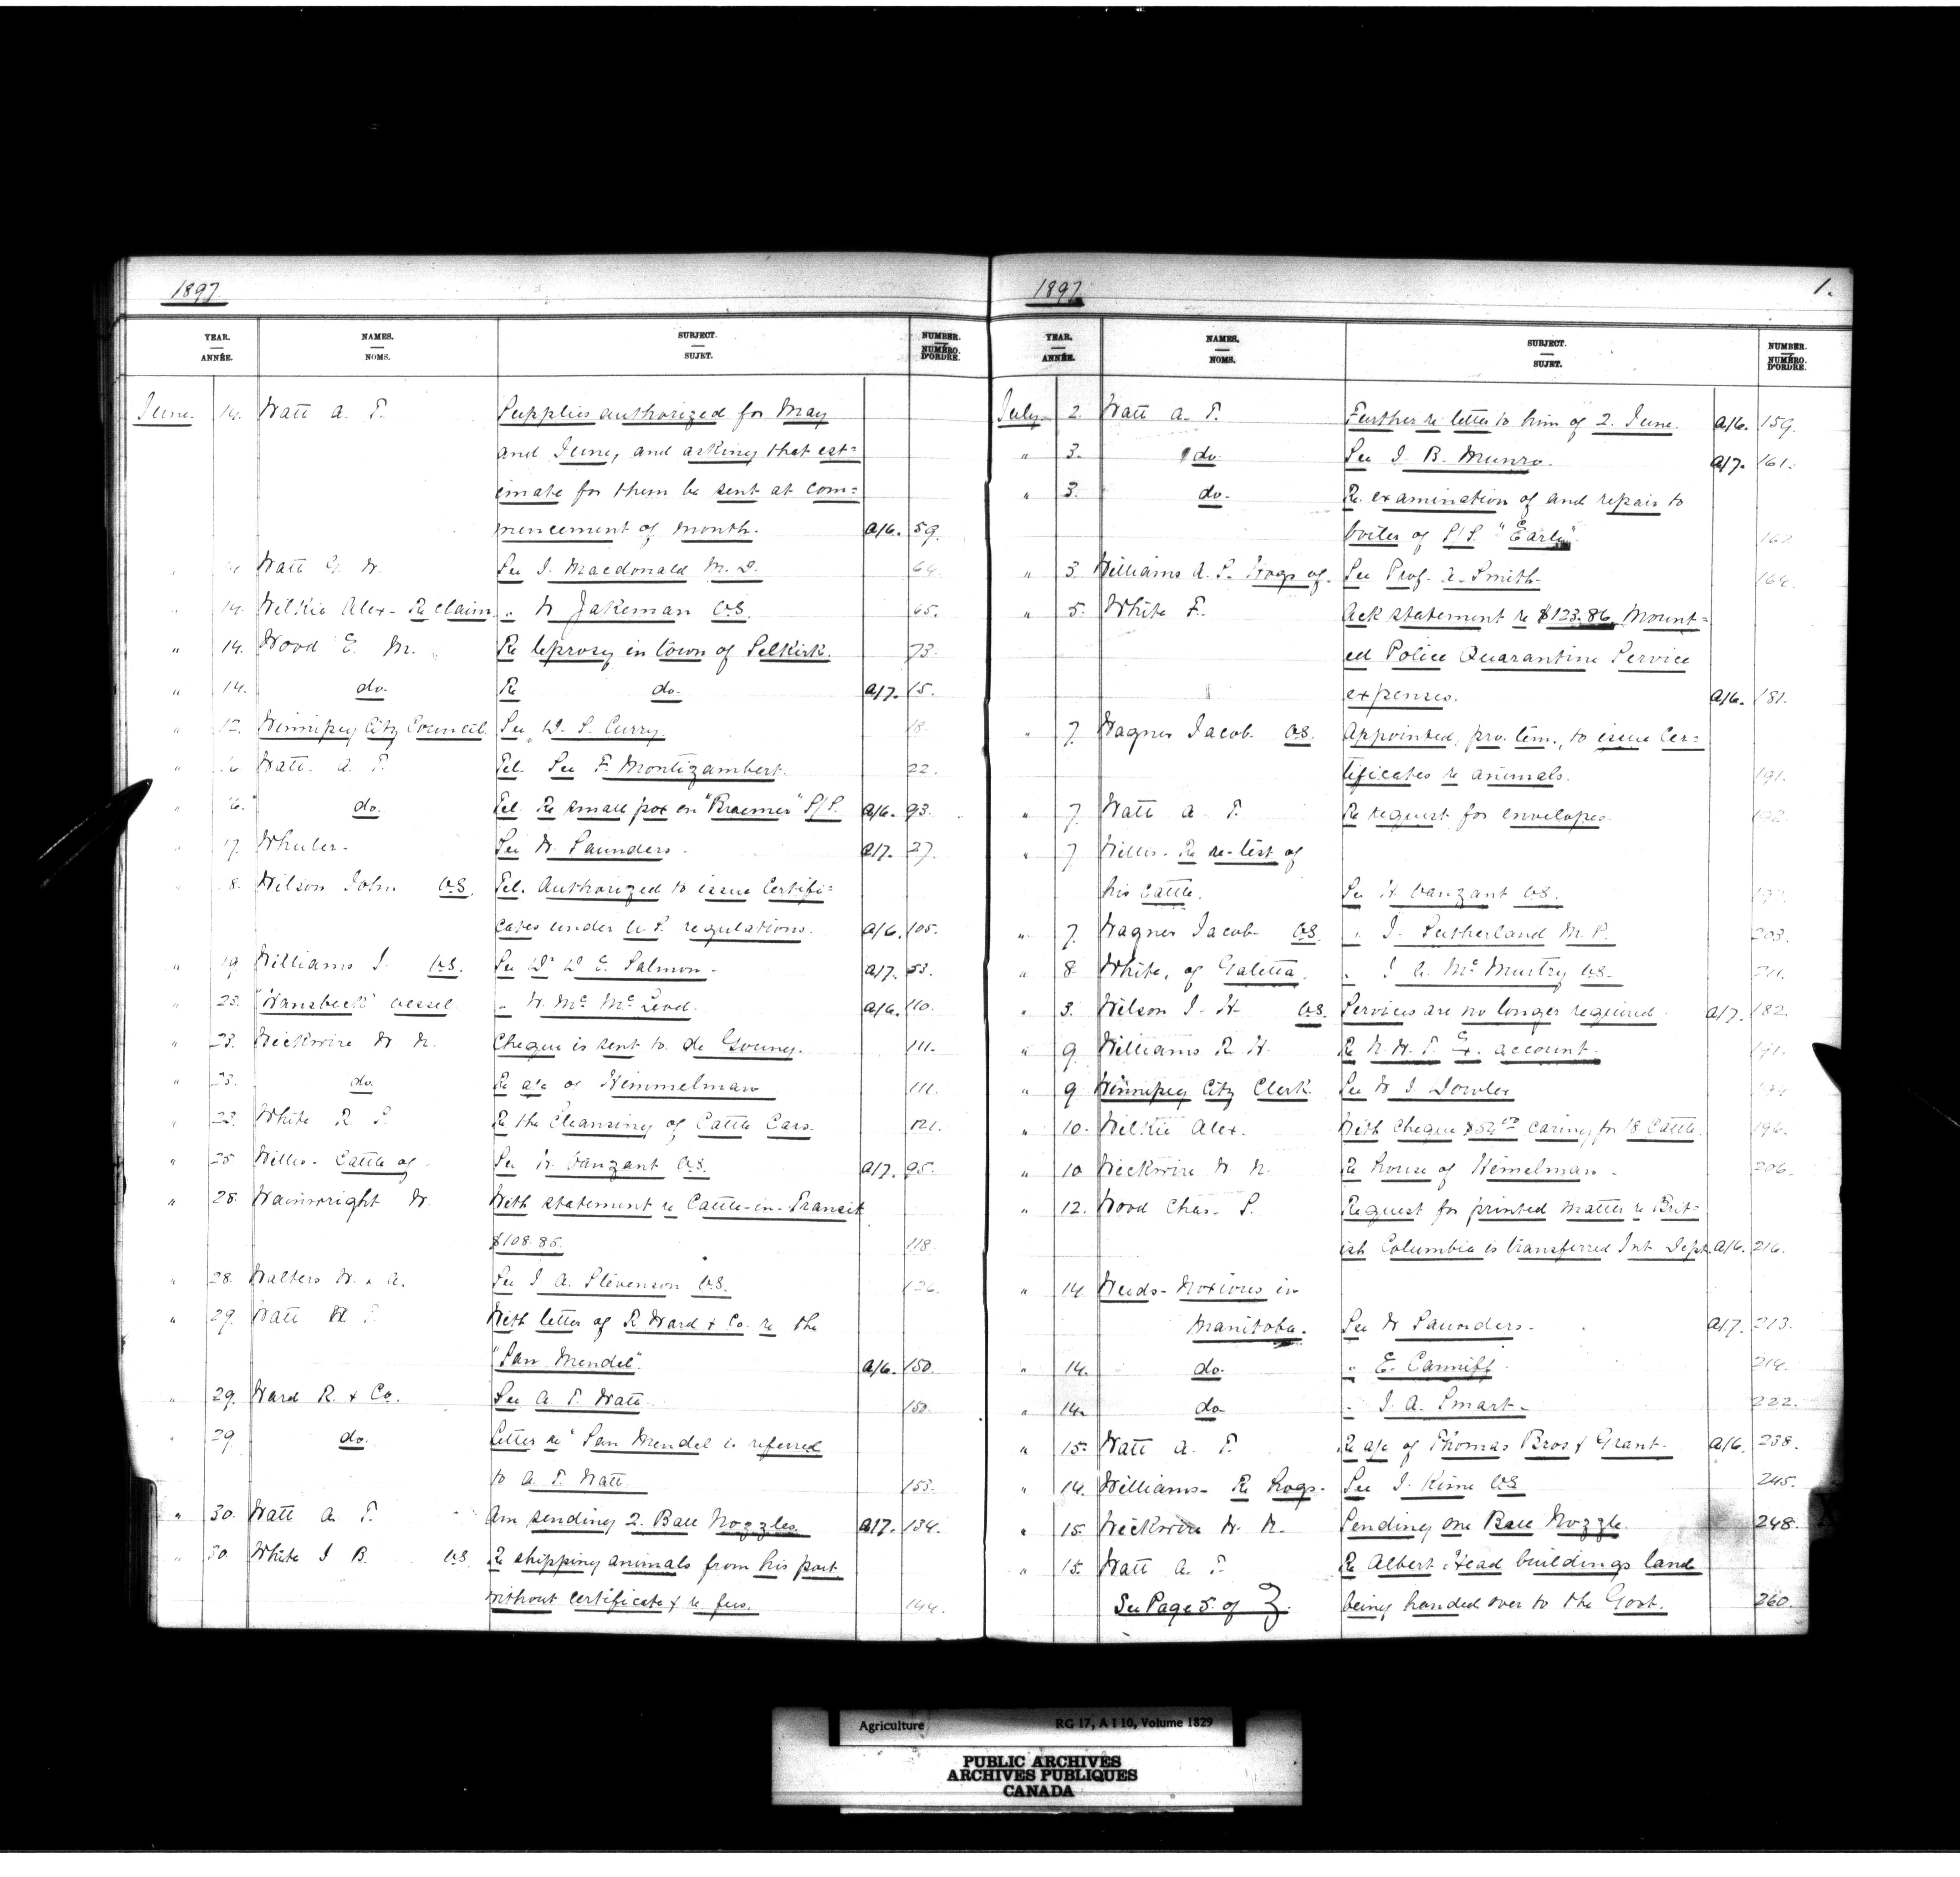 1897
YEAR. ANNÉE. NAMES. NOMS. SUBJECT. SUJET. NUMBER. NUMÉRO. D'ORDRE.
June 14. Watt A. T. Supplies authorized for May
and June, and asking that est=
imate for them be sent at com=
mencement of month. A/6. 59.
" Watt G. W. See J. Macdonald M. D. 64.
" 14. Wilkie Alex- Re claim. " W Jakeman V.S. 65.
" 14. Wood E. M. Re leprosy in town of Selkirk. 73.
" 14. do. Re do. A/7. 15.
" Winnipeg City Council. See D. S. Curry. 18.
" Watt. A. T. Tel. See F. Montizambert. 22.
" do. Tel. Re small pox on "Braemer" S/S. A/6. 93.
" 17. Wheeler- See W. Saunders- A/7. 27.
" 8. Wilson John V.S. Tel. Authorized to issue Certifi=
cates under U. S. regulations. A/6. 105.
" 19 Williams J. V.S. See Dr D. E. Salmon- A/7. 53.
" 23. "Wansbeck" vessel " W. Mc McLeod. A/6. 110.
" 23. Wickwire W. N. Cheque is sent to de Gouney. 111.
" 23. do. Re a/c of Himmelman 111.
" 23. White R. S. Re the Cleansing of Cattle Cars. 121.
" 25 Willis- Cattle of See H. Vanzant V.S. A/7. 95.
" 25. Wainwright W. With statement re Cattle-in-Transit
$108.85. 118.
" 28. Walters W. & A. See J. A. Stevenson V.S. 126.
" 29. Watt With letter of R Ward & Co. re the
"San Mendel". A/6. 150.
" 29. Ward R. & Co. See A. T. Watt 150.
" 29 do. Letter re "San Mendel is referred
to A. T. Watt 153.
" 30. Watt A. T. Am sending 2. Ball Nozzles. A/7. 134.
" 30. White J. B. V.S. Re shipping animals from his port
without certificate & re fees. 144.
1897 1.
YEAR. ANNÉE. NAMES. NOMS. SUBJECT. SUJET. NUMBER. NUMÉRO. D'ORDRE.
July 2. Watt A. T. Further re letter to him of 2. June. A/6. 159.
" 3. do. See J. B. Munro. A/7. 161.
" 3. do. Re examination of and repair to
boiler of S/S. "Earle". 162
" 3. Williams A. S. Hogs of. See Prof. A. Smith- 164.
" 5. White F. Ack statement re $123.86 Mount=
ed Police Quarantine Service
expenses. A/6. 181.
" 7. Wagner Jacob. V.S. Appointed, pro. tem., to issue Cer=
tificates re animals. 191.
" 7. Watt A. T. Re request for envelopes. 192.
" 7. Willis- Re re-test of
his Cattle. See H. Vanzant V.S.
" 7. Wagner Jacob V.S. " J. Sutherland M. P. 203.
" 8. White, of Galetta. " J. A. McMurtry V.S.- 211.
" 3. Wilson J. H- V.S. Services are no longer required. A/7. 182.
" 9 Williams R. H. Re N. W. T. Ex. account- 191.
" 9 Winnipeg City Clerk. See W J. Dowler
" 10. Wilkie Alex. With Cheque $54 00 Caring for 18. Cattle. 196.
" 10 Wickwire W. N. Re house of Himelman. 206.
" 12. Wood Chas. S. Request for printed matter re Brit=
ish Columbia is transferred Int. Dept. A/6. 216.
" 14 Weeds- Noxious in
Manitoba. See W Saunders- A/7. 213.
" 14. do. " E. Canniff. 214.
" 14. do " J. A. Smart- 222.
" 15. Watt A. T. Re a/c of Thomas Bros & Grant. A/6. 238.
" 14. Williams- Re hogs- See J. Kime V.S 245.
" 15. Wickwire W. N. Sending one Ball Nozzle. 248.
" 15. Watt A. T. Re Albert Head buildings land
See Page 5. of Z. being handed over to the Govt. 260.
Agriculture RG 17, A I 10, Volume 1829
PUBLIC ARCHIVES
ARCHIVES PUBLIQUES
CANADA